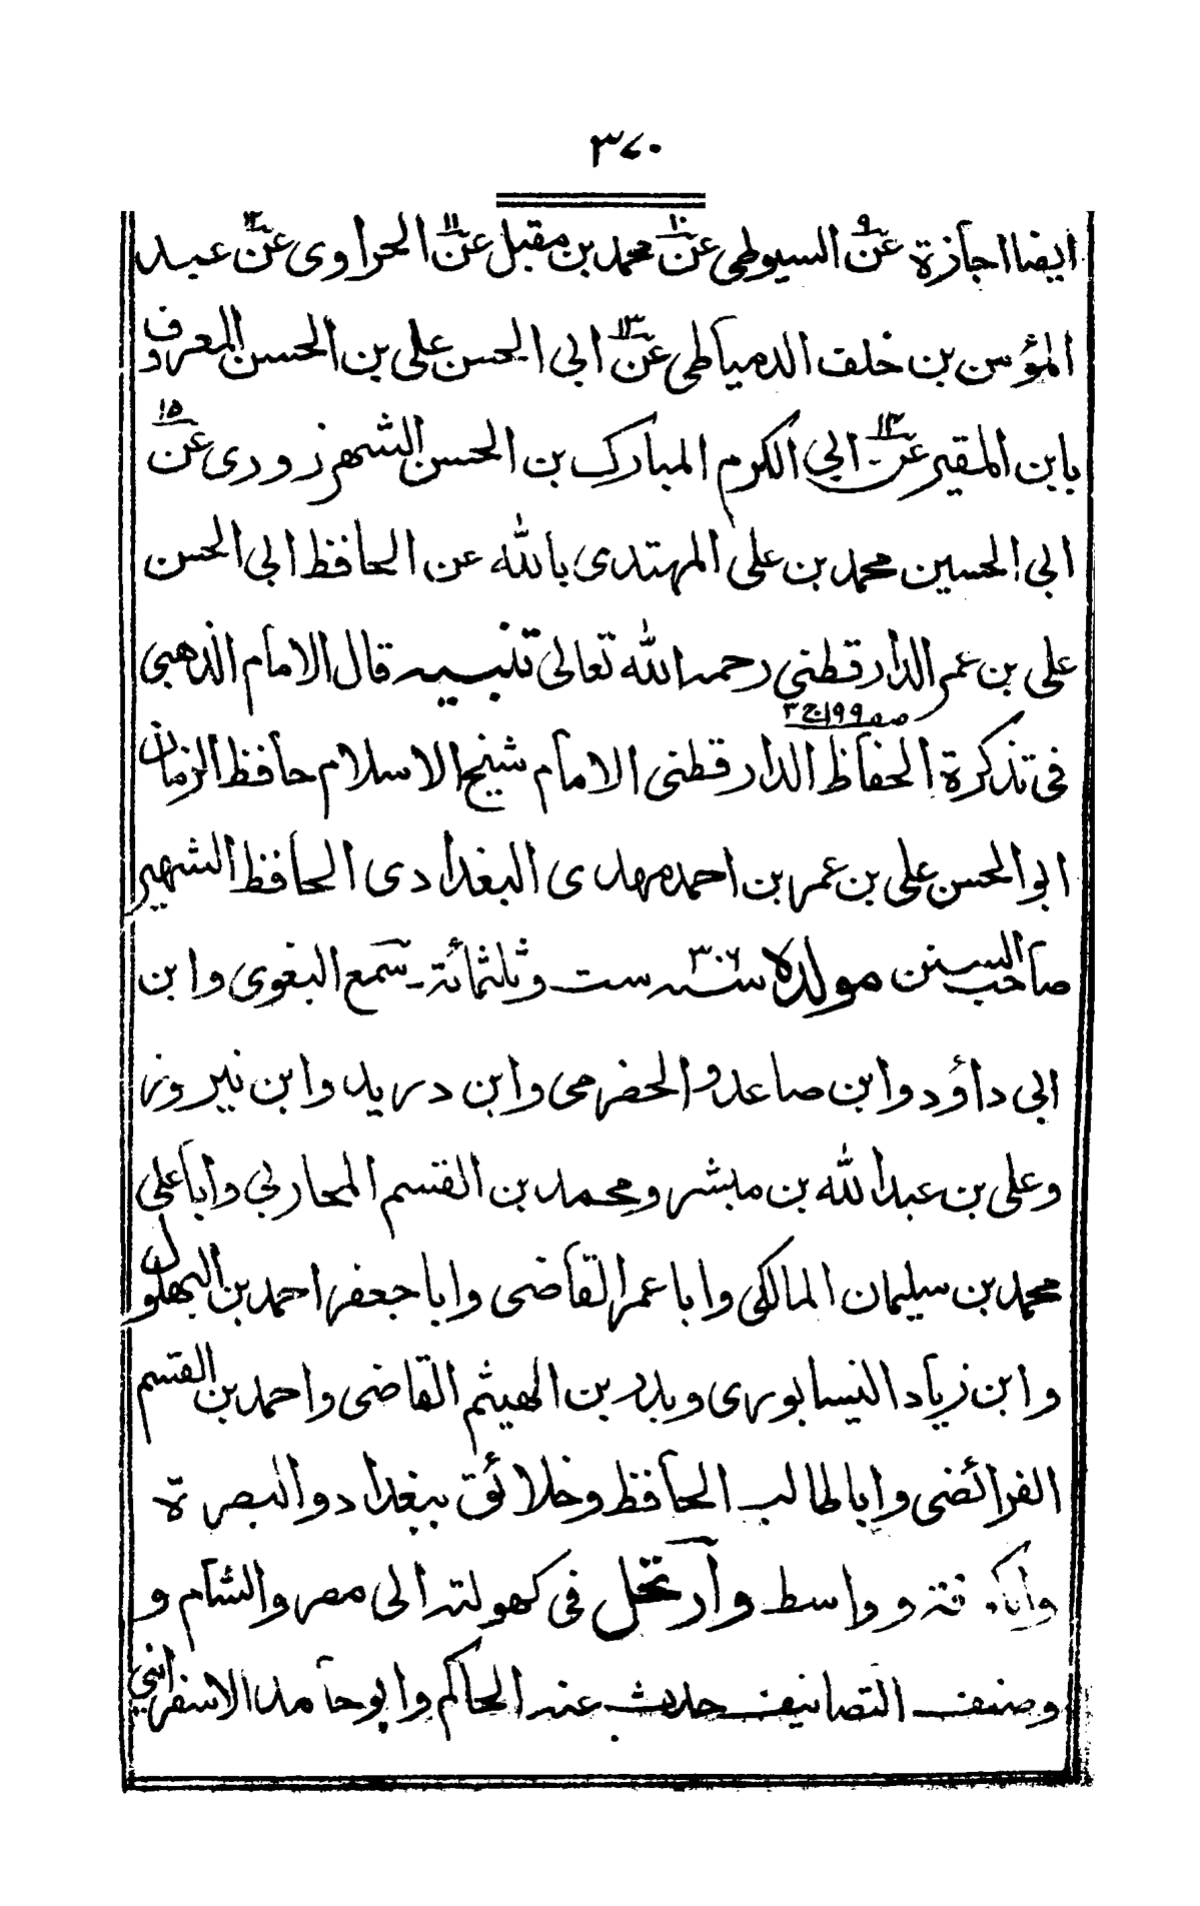 ٣٧٠
ايضا اجازة عن٩ السيوطى عن١٠ محمد بن مقبل عن١١ الحراوى عن١٢ عبد
المؤمن بن خلف الدمياطى عن١٣ ابى الحسن على بن الحسن المعروف
بابن المقير عن١٤ ابى الكرم المبارك بن الحسن الشهرزورى عن١٥
ابى الحسين محمد بن على المهتدى بالله عن الحافظ ابى الحسن
على بن عمر الدارقطنى رحمہ الله تعالى تنبيہ قال الامام الذهبى
فى تذكرة الحفاظ صہ١٩٩ج٣ الدارقطنى الامام شيخ الاسلام حافظ الزمان
ابو الحسن على بن عمر بن احمد مهدى البغدادى الحافظ الشهير
صاحب السنن مولده سنہ٣٠٦ ست وثلثمائة۔ سمع البغوى وابن
ابى داؤد وابن صاعد والحضرمى وابن دريد وابن نيروز
وعلى بن عبد الله بن مبشر ومحمد بن القسم المحاربى وابا على
محمد بن سليمان المالكى وابا عمر القاضى وابا جعفر احمد بن البهلول
وابن زياد النيسابورى وبدر بن الهيثم القاضى واحمد بن القسم
الفرائضى وابا طالب الحافظ وخلائق ببغداد والبصرة
والكوفة وواسط وارتحل فى كهولتہ الى مصر والشام و
وصنف التصانيف حدث عنہ الحاكم وابو حامد الاسفرائينى